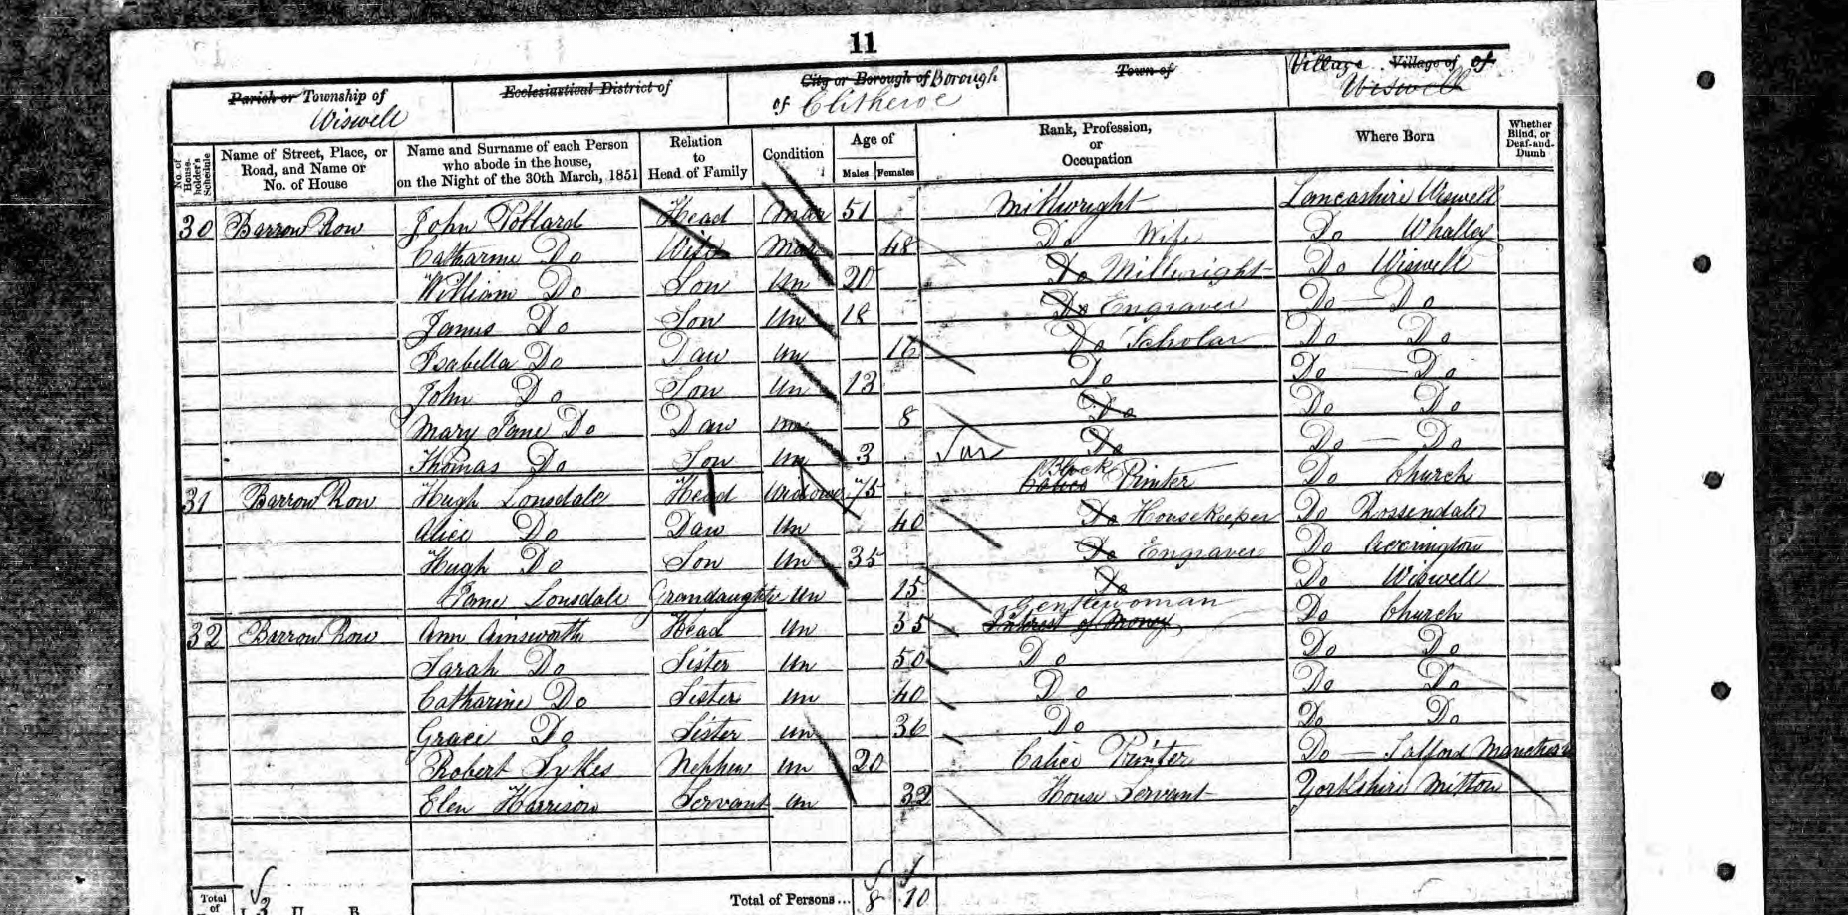 11
Parish or Township of Ecclesiastical District of City or Borough of Borough Town of Village Village of of
Wiswell of Clitheroe Wiswell
No. of House-holder's Schedule Name of Street, Place, or Road, and Name or No. of House Name and Surname of each Person who abode in the house, on the Night of the 30th March, 1851 Relation to Head of Family Condition Age of Males Females Rank, Profession, or Occupation Where Born Whether Blind, or Deaf-and-Dumb
30 Barrow Row John Pollard Head Mar 51 Millwright Lancashire Wiswell
Catharine Do Wife Mar 48 Do Wife Do Whalley
William Do Son Un 20 Do Millwright Do Wiswell
James Do Son Un 18 Do Engraver Do Do
Isabella Do Daur Un 16 Do Scholar Do Do
John Do Son Un 13 Do Do Do
Mary Jane Do Daur Un 8 Do Do Do
Thomas Do Son Un 3 Do Do Do
31 Barrow Row Hugh Lonsdale Head Widower 75 Calico Block Printer Do Church
Alice Do Daur Un 40 Do Housekeeper Do Rossendale
Hugh Do Son Un 35 Do Engraver Do Accrington
Jane Lonsdale Grandaughter Un 15 Do Do Wiswell
32 Barrow Row Ann Ainsworth Head Un 55 Interest of Money Gentlewoman Do Church
Sarah Do Sister Un 50 Do Do Do
Catharine Do Sister Un 40 Do Do Do
Grace Do Sister Un 36 Do Do Do
Robert Sykes Nephew Un 20 Calico Printer Do Salford Manchester
Elen Harrison Servant Un 32 House Servant Yorkshire Mitton
Total of I 3 U B Total of Persons... 8 10